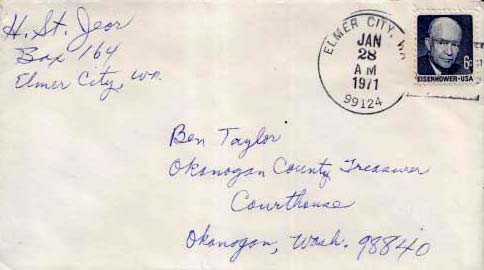 H. St. Jeor
Box 164
Elmer City, Wn.
ELMER CITY, WA
JAN
28
AM
1971
99124
6c
EISENHOWER·USA
Ben Taylor
Okanogan County Treasurer
Courthouse
Okanogan, Wash. 98840